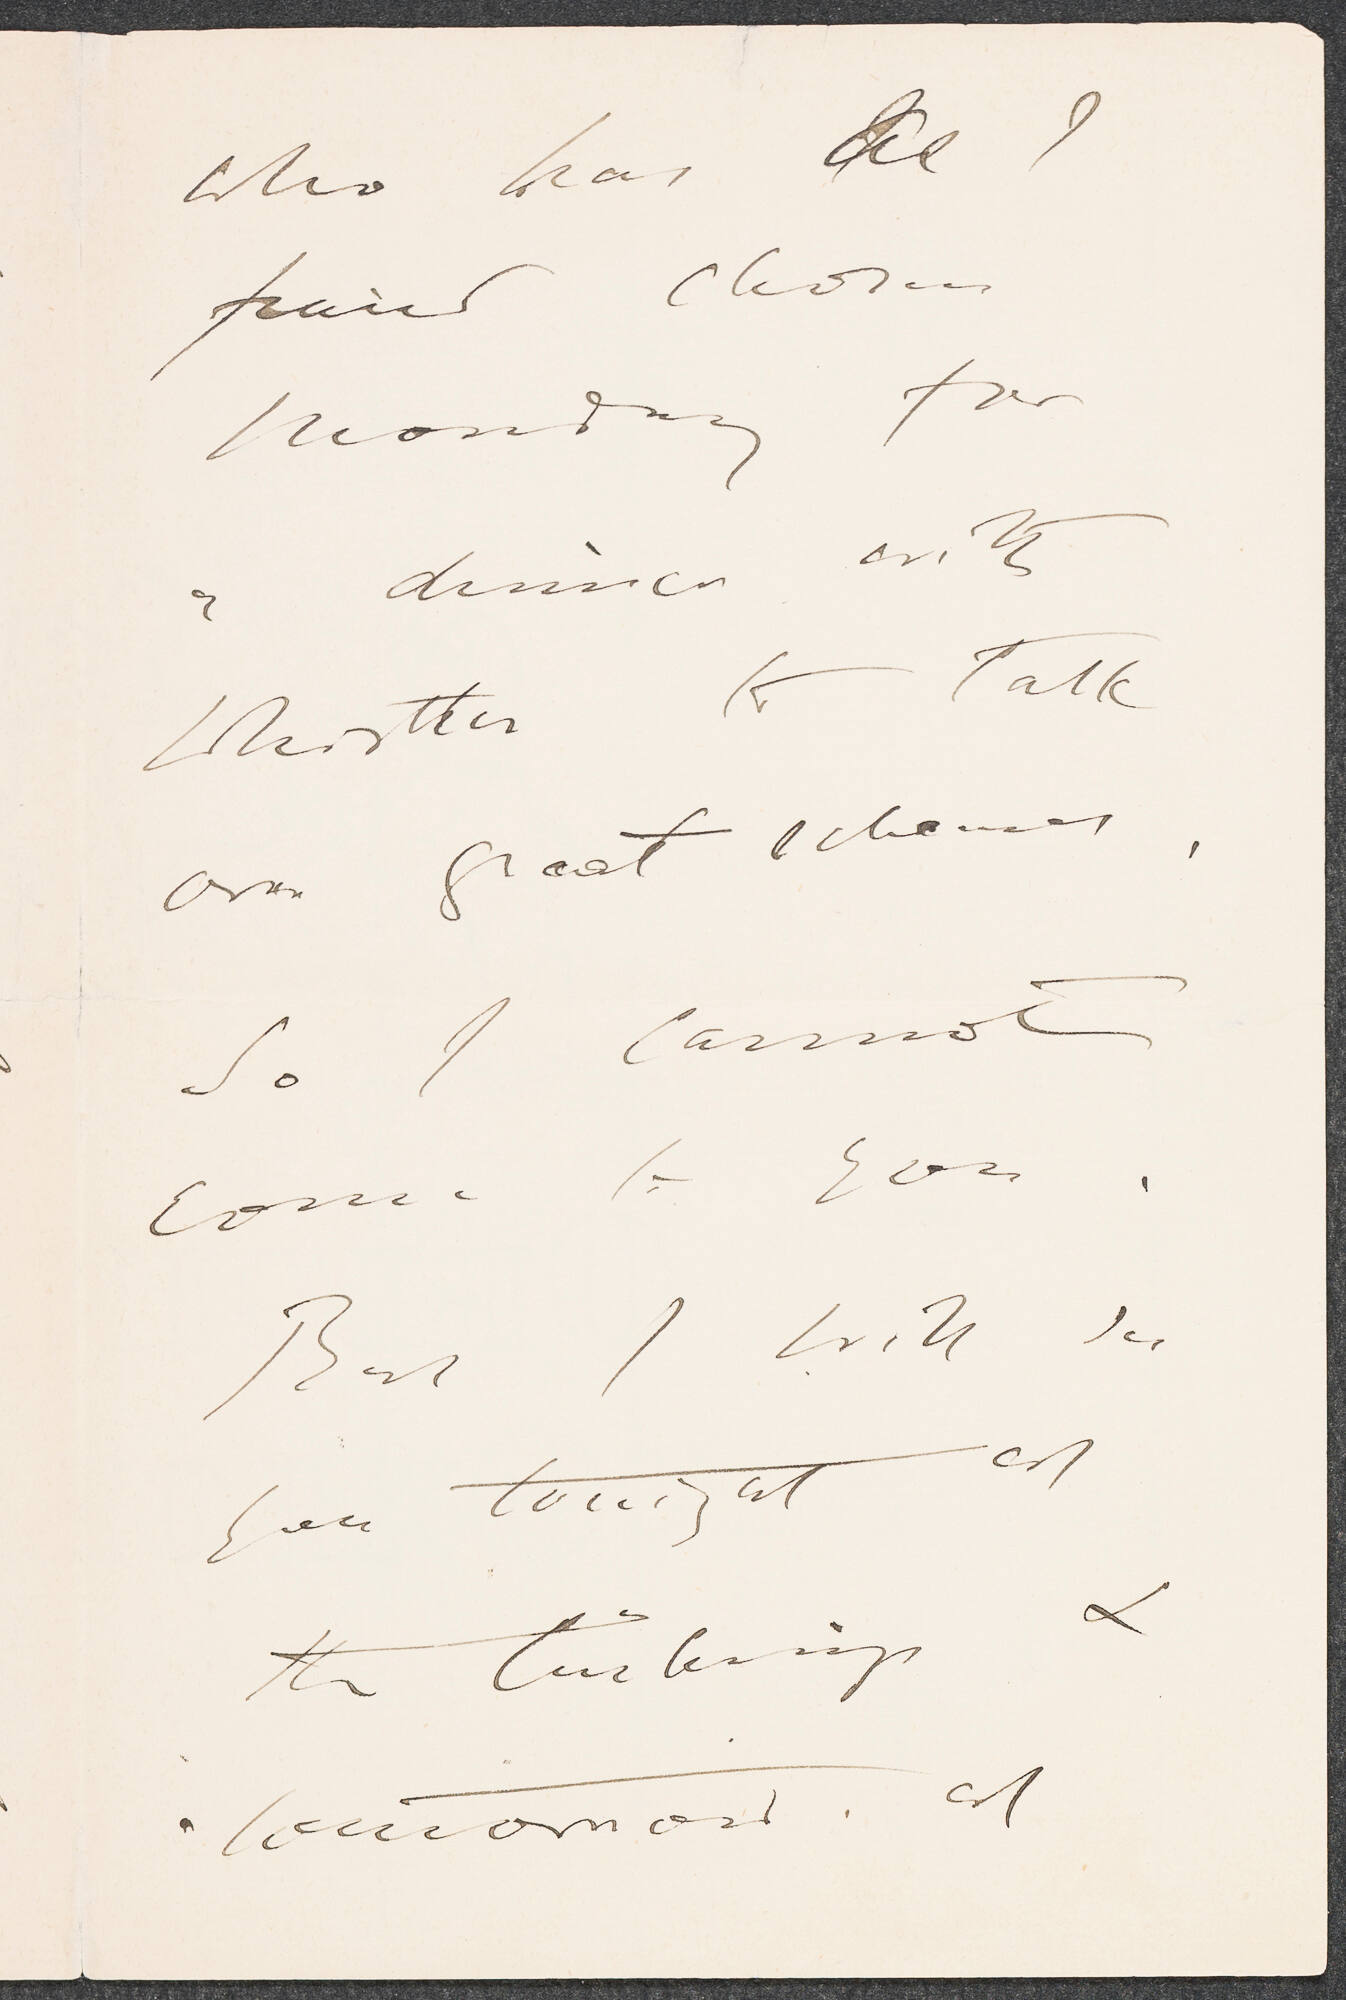 who has as I
find chosen
Monday for
a dinner with
Whistler to talk
over great schemes,
So I cannot
come to you.
But I will see
you tonight at
the &
tomorrow. at